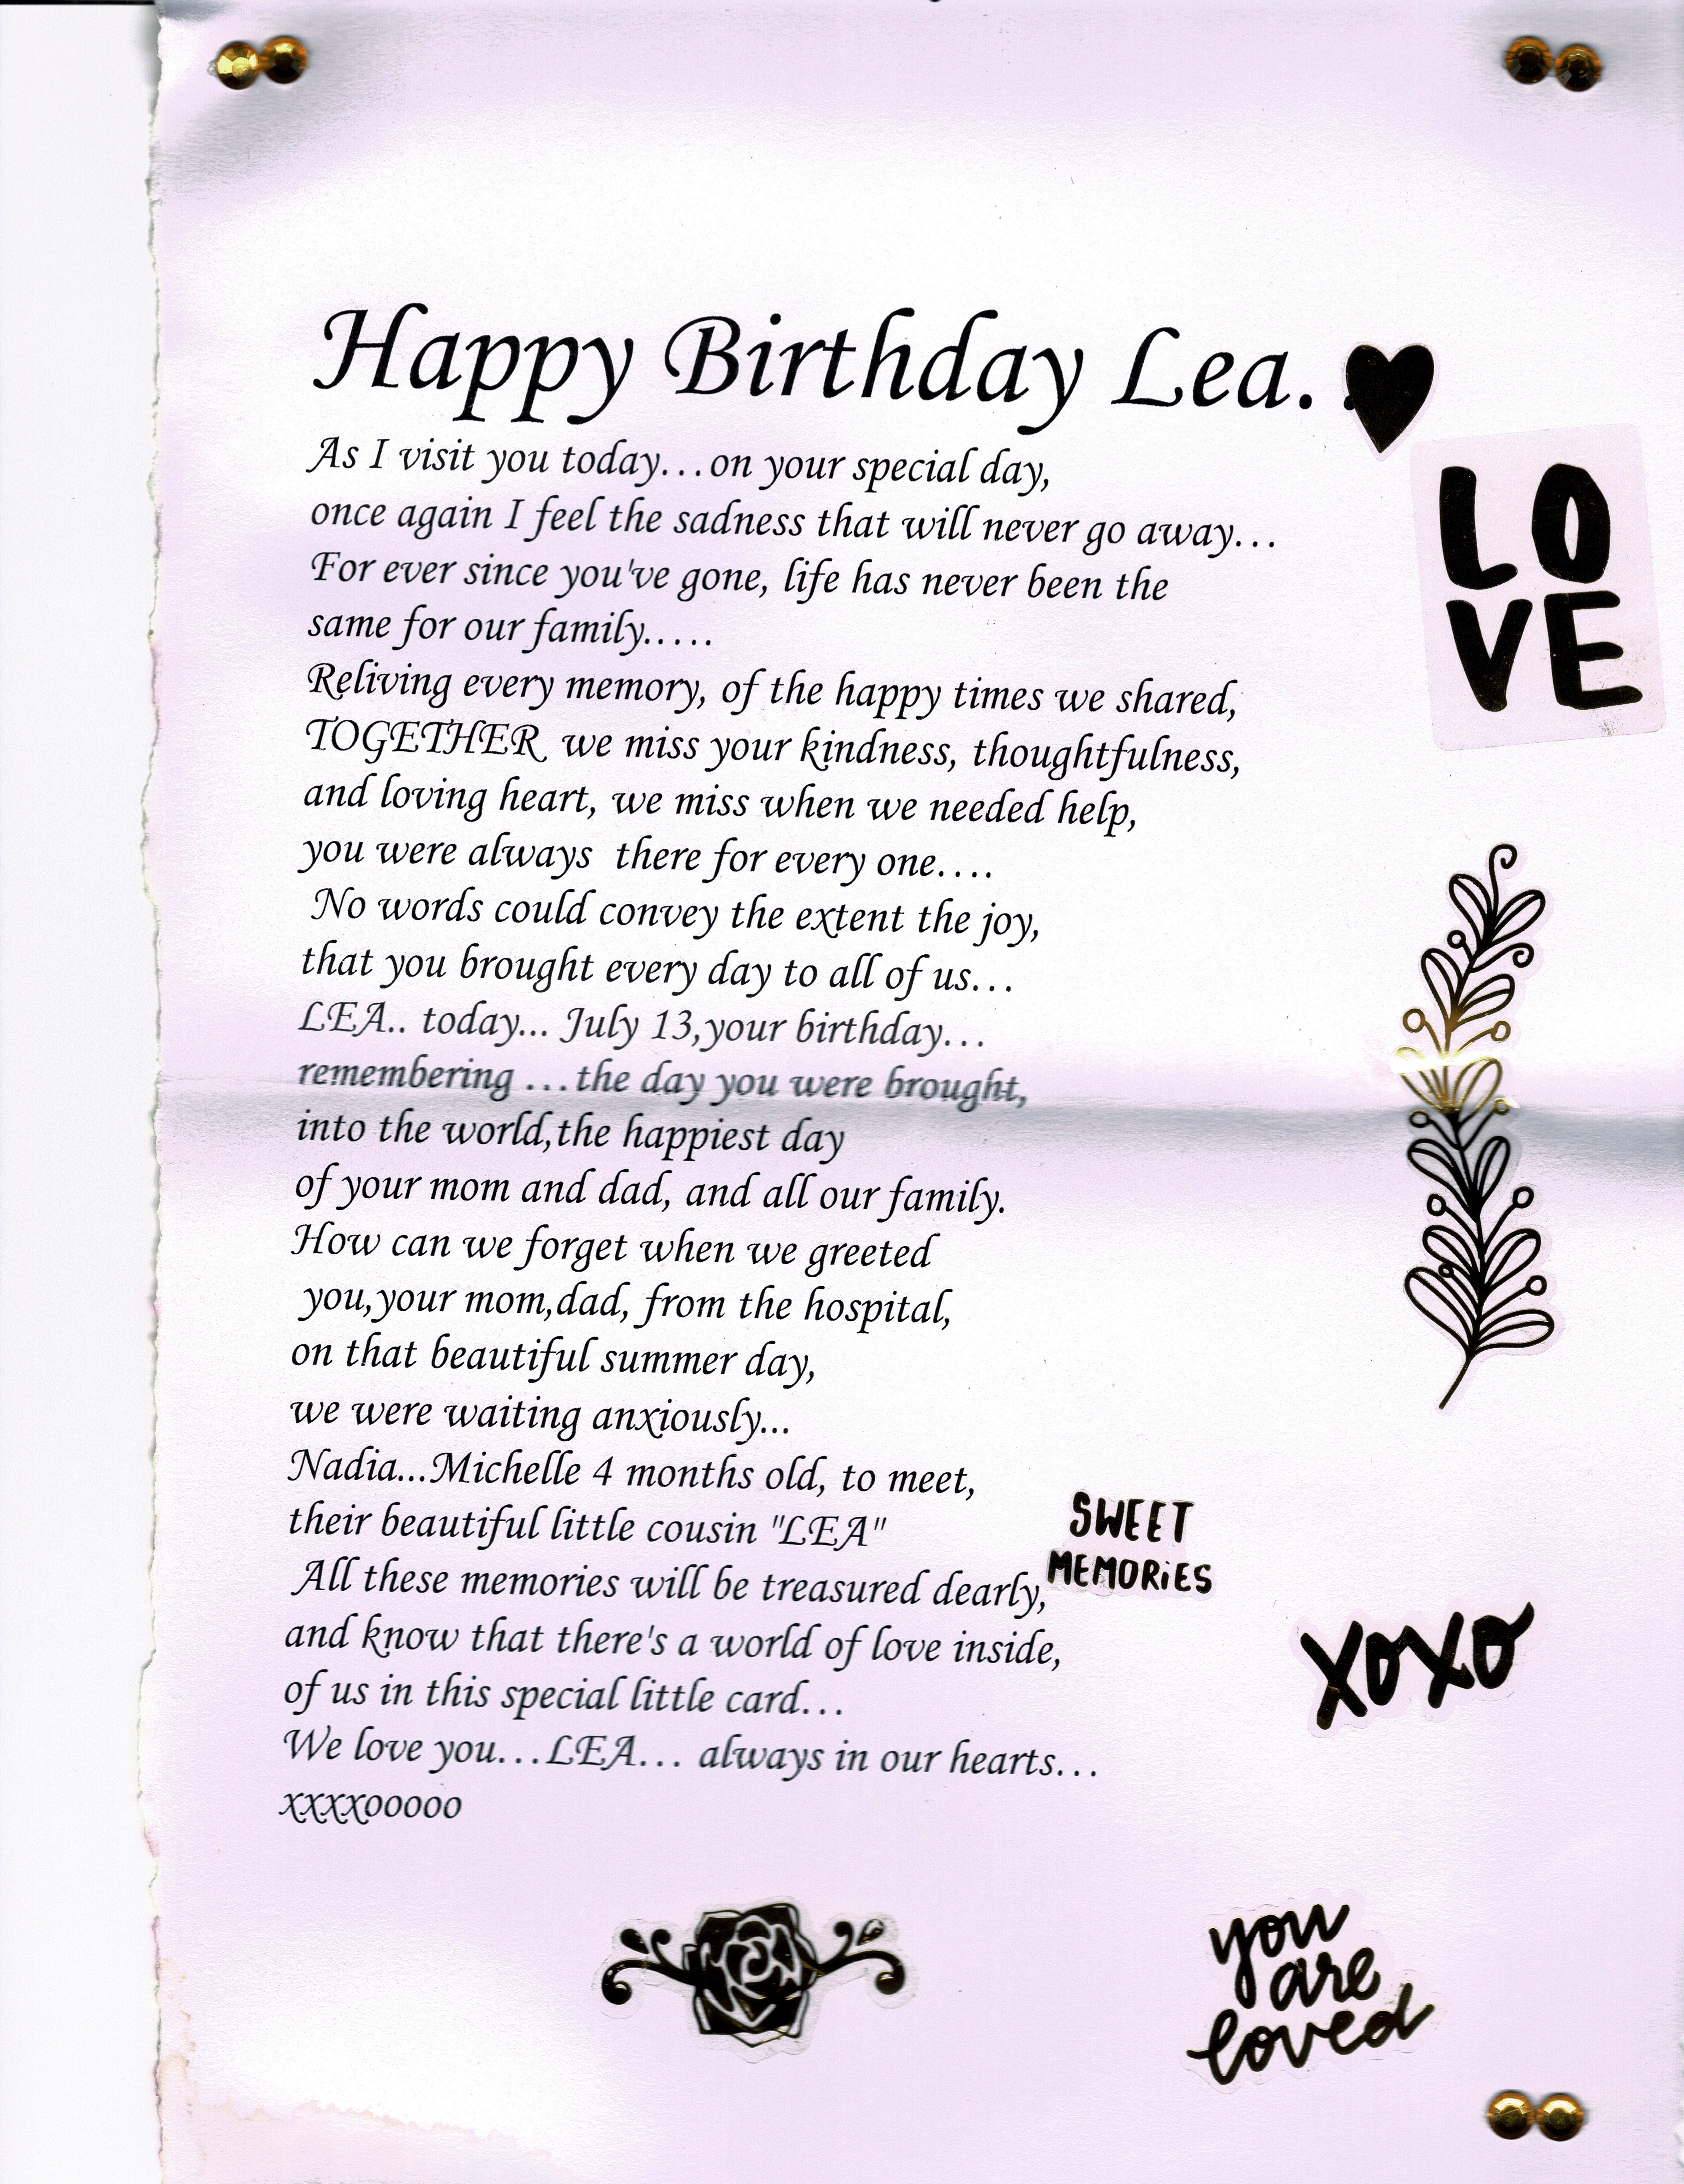 Happy Birthday Lea. .
LO
VE
As I visit you today...on your special day,
once again I feel the sadness that will never go away...
For ever since you've gone, life has never been the
same for our family.....
Reliving every memory, of the happy times we shared,
TOGETHER  we miss your kindness, thoughtfulness,
and loving heart, we miss when we needed help,
you were always  there for every one....
No words could convey the extent the joy,
that you brought every day to all of us...
LEA.. today... July 13,your birthday...
remembering ...the day you were brought,
into the world,the happiest day
of your mom and dad, and all our family.
How can we forget when we greeted
you,your mom,dad, from the hospital,
on that beautiful summer day,
we were waiting anxiously...
Nadia...Michelle 4 months old, to meet,
their beautiful little cousin "LEA"
SWEET
MEMORiES
All these memories will be treasured dearly,
and know that there's a world of love inside,
of us in this special little card...
xoxo
We love you...LEA... always in our hearts...
xxxxooooo
you
are
loved